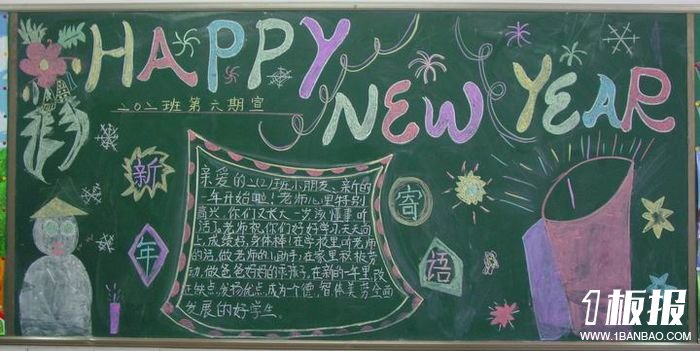 HAPPY NEW YEAR
二〇二班第六期宣
新年
寄语
亲爱的202班小朋友、新的
一年开始啦!老师心里特别
高兴,你们又长大一岁该懂事听
话了。老师祝你们好好学习,天天向
上,成绩好,身体棒!在学校里听老师
的话,做老师的小助手;在家里积极劳
动,做爸爸妈妈的乖孩子,在新的一年里改
正缺点,发扬优点,成为一个德,智,体,美,劳全面
发展的好学生。
1板报
WWW.1BANBAO.COM